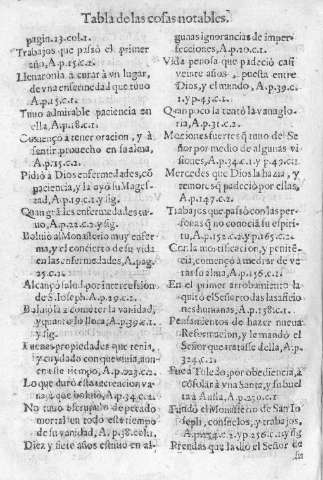 Tabla de las cosas notables.
pagin.13.col.1.
Trabajos que passò el primer
año, A p.15.c.2.
Lleuaronla a curar à vn lugar,
de vna enfermedad que tuuo
A p.15.c.1.
Tuuo admirable paciencia en
ella, A p.18.c.1.
Començò a tener oracion, y à
sentir prouecho en su alma,
A p.15.c.2.
Pidiò à Dios enfermedades, cõ
paciencia, y la oyò su Mages-
tad, A p.19.c.1 y sig.
Quan grãdes enfermedades tu-
uo, A p.22.c.2.y sig.
Boluiò al Monasterio muy enfer-
ma, y el contiero de su vida
en las enfermedades, A pag.
25.c.1.
Alcançò salud por intercession
de S. Ioseph. A p.29.c.2.
Boluiò a cometer la vanidad,
y quanto lo llora, A p.39.c.1.
y sig.
Buenas propiedades que tenia,
y cuydado con que viuia, aun en
este tiempo, A p.223.c.2.
Lo que durò esta recreacion va-
na à que boluiò, A p.34.c.
No tuuo escrupulo de pecado
mortal en todo este tiempo
de su vanidad, A p.38.col.1.
Diez y siete años estuuo en al-
gunas ignorancias de imper-
fecciones, A p.20.c.1.
Vida penosa que padeciò casi
veinte años, puesta entre
Dios, y el mundo, A p.39.c.
1.y p.43.c.1.
Quan poco la tentò la vanaglo-
ria, A p.31.c.2.
Mociones fuertes q̃ tuuo del Se-
ñor por medio de algunas vi-
siones, A p.34.c.1. y p.49.c.2.
Mercedes que Dios la hazia, y
temores q̃ padeciò por ellas,
A p.147.c.2.
Trabajos que passò con las per-
sonas q̃ no conociã su espiri-
tu, A p.152.c.2.y p.165.c.2.
Con la mortificacion, y peniten-
cia, començò a medrar de ve-
ras su alma, A p.156.c.1.
En el primer arrobamiento la
quitò el Señor las las aficio
nes humanas, A p.158.c.1.
Pensamientos de hazer nueua
Reformacion, y le mandò el
Señor que tratasse della, A p.
324.c.2.
Fue a Toledo, por obediencia, à
cõsolar à vna Santa, y su buel
ta a Auila, A p.250.c.1
Fundò el Monasterio de San Io
seph, consuelos, y trabajos,
A p.274.c.2.y p.256.c.1.y sig
Prendas que la diò el Señor de
su